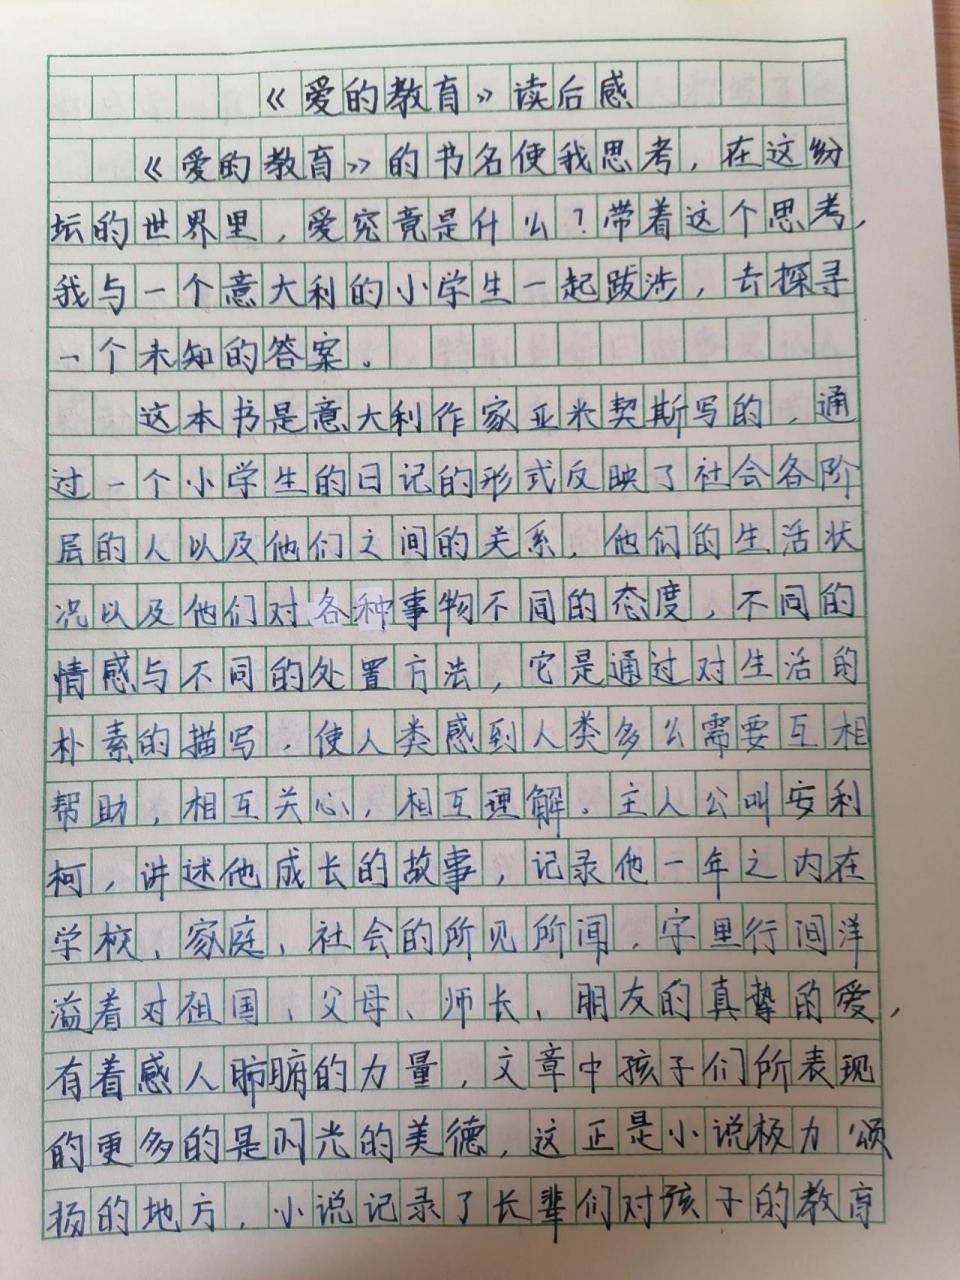 《爱的教育》读后感
《爱的教育》的书名使我思考，在这纷
坛的世界里，爱究竟是什么？带着这个思考，
我与一个意大利的小学生一起跋涉，去探寻
一个未知的答案。
这本书是意大利作家亚米契斯写的，通
过一个小学生的日记的形式反映了社会各阶
层的人以及他们之间的关系，他们的生活状
况以及他们对各种事物不同的态度，不同的
情感与不同的处置方法，它是通过对生活的
朴素的描写，使人类感到人类多么需要互相
帮助，相互关心，相互理解。主人公叫安利
柯，讲述他成长的故事，记录他一年之内在
学校、家庭、社会的所见所闻，字里行间洋
溢着对祖国、父母、师长、朋友的真挚的爱，
有着感人肺腑的力量，文章中孩子们所表现
的更多的是闪光的美德，这正是小说极力颂
扬的地方，小说记录了长辈们对孩子的教育